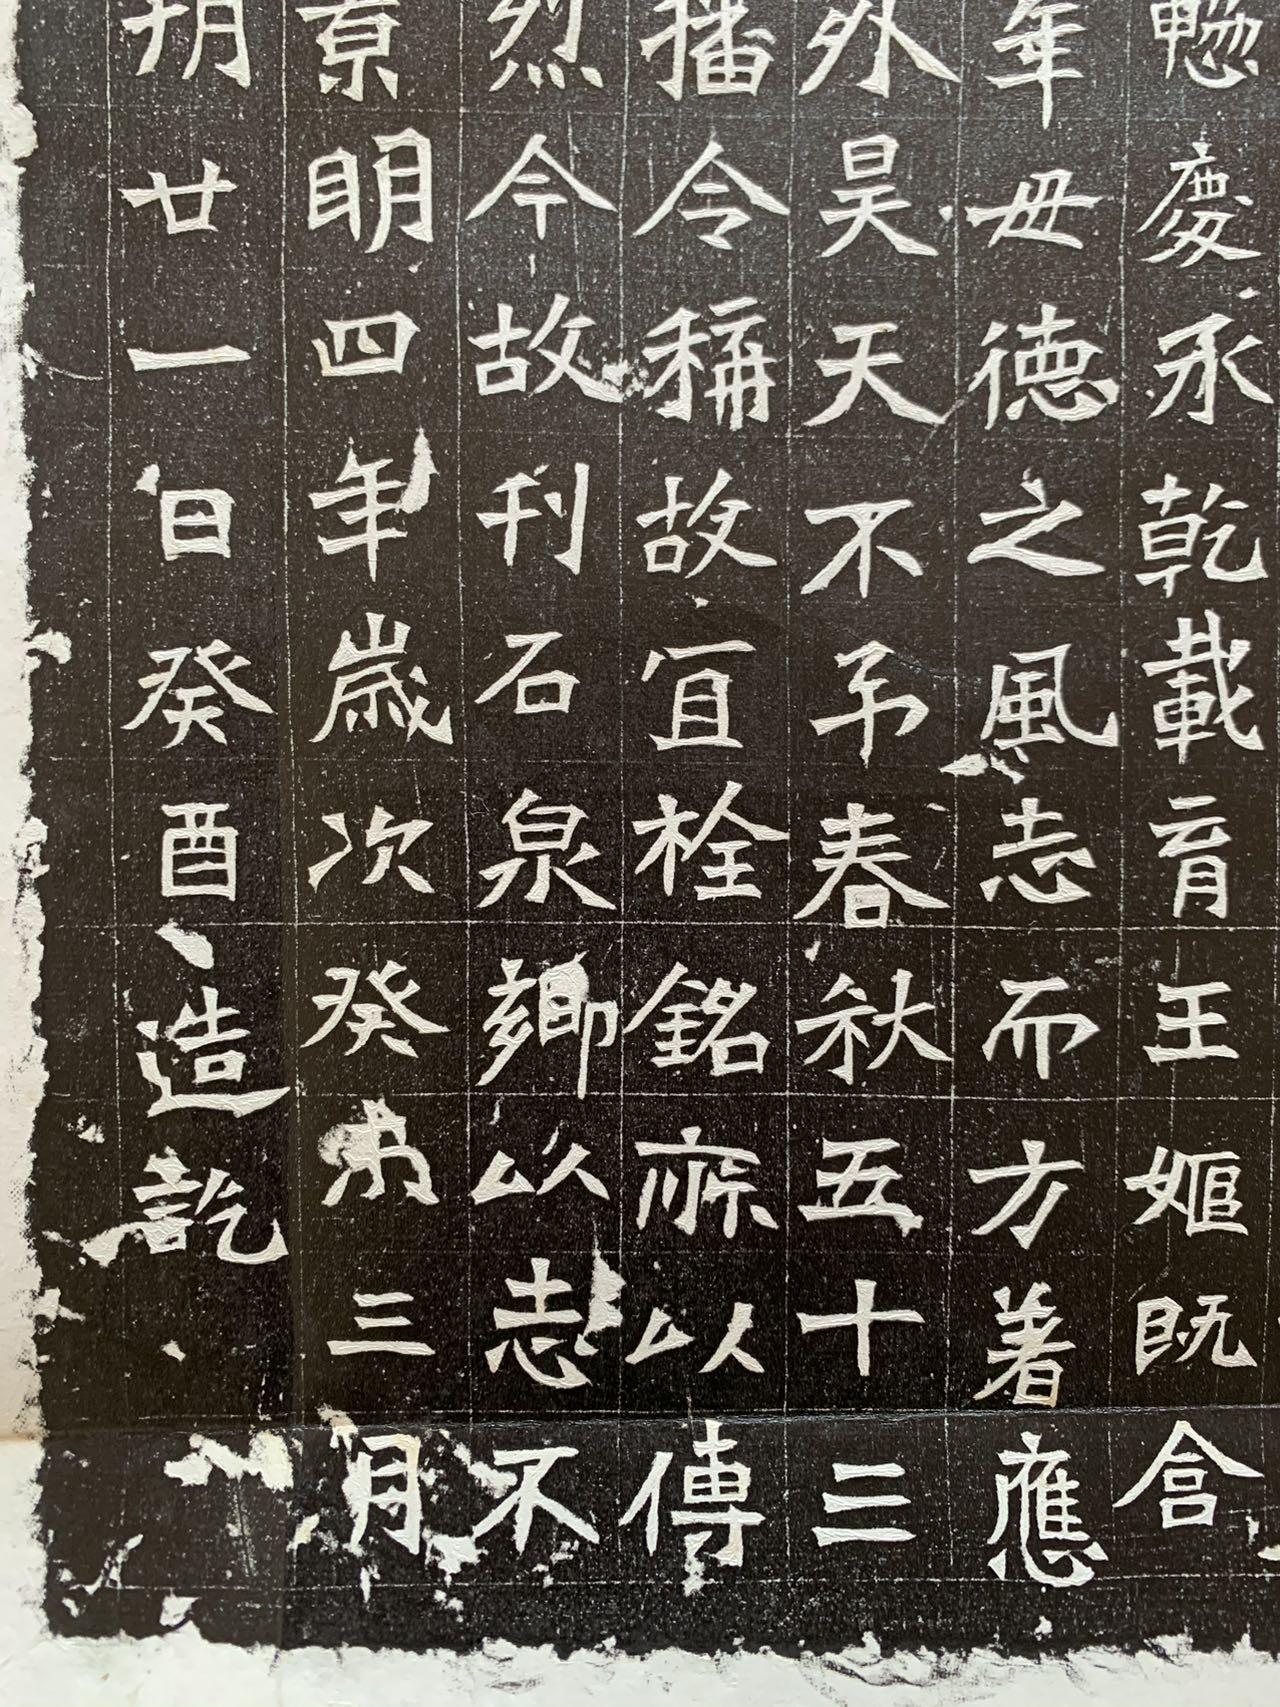 慶承乾載育王姬既含
年母德之風志而方著應
外昊天不弔春秋五十三
播令稱故宜栓銘旅以傳
烈今故刊石泉鄉以志不
景明四年歲次癸未三月
朔廿一日癸酉造訖